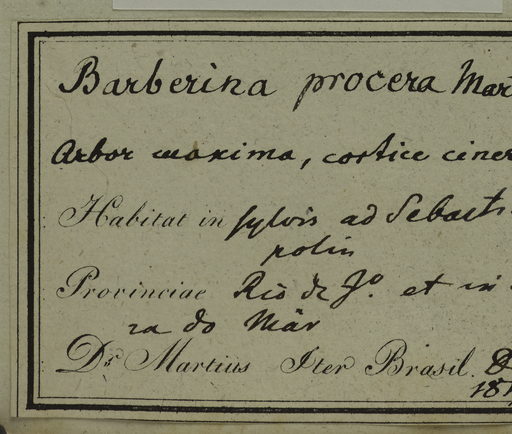 Barberina procera Mar
Arbor maxima, cortice ciner
Habitat in sylvis ad Sebast
polin
Provinciae Rio de Jº. et in
ra do Mar
Dr. Martius Iter Brasil.
181